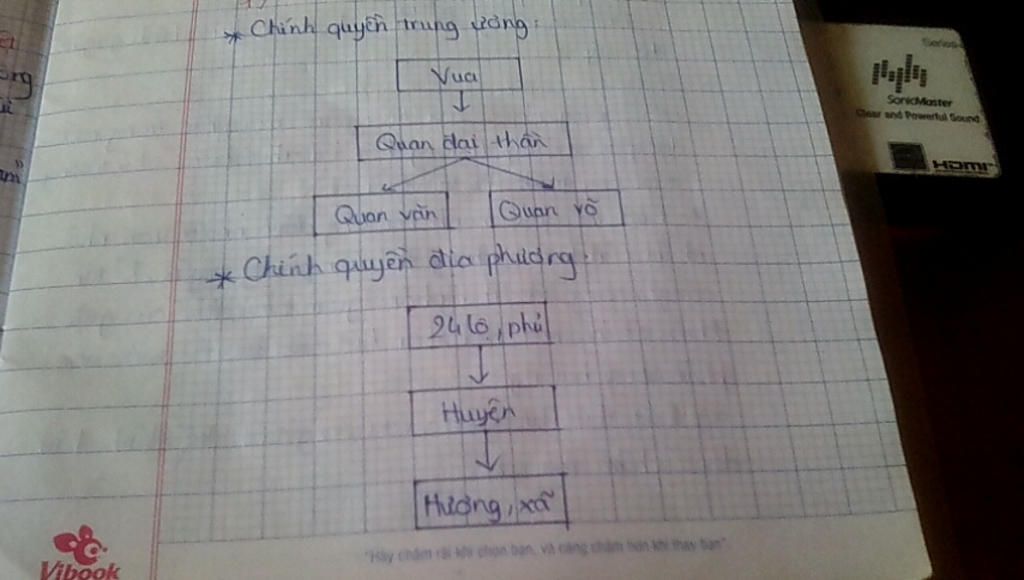 * Chính quyền trung ương:
Vua
Quan đại thần
Quan văn
Quan võ
* Chính quyền địa phương:
24 lộ, phủ
Huyện
Hương, xã
"Hãy chậm rãi khi chọn bạn, và càng chậm hơn khi thay bạn"
Vibook
SonicMaster
Clear and Powerful Sound
HDMI